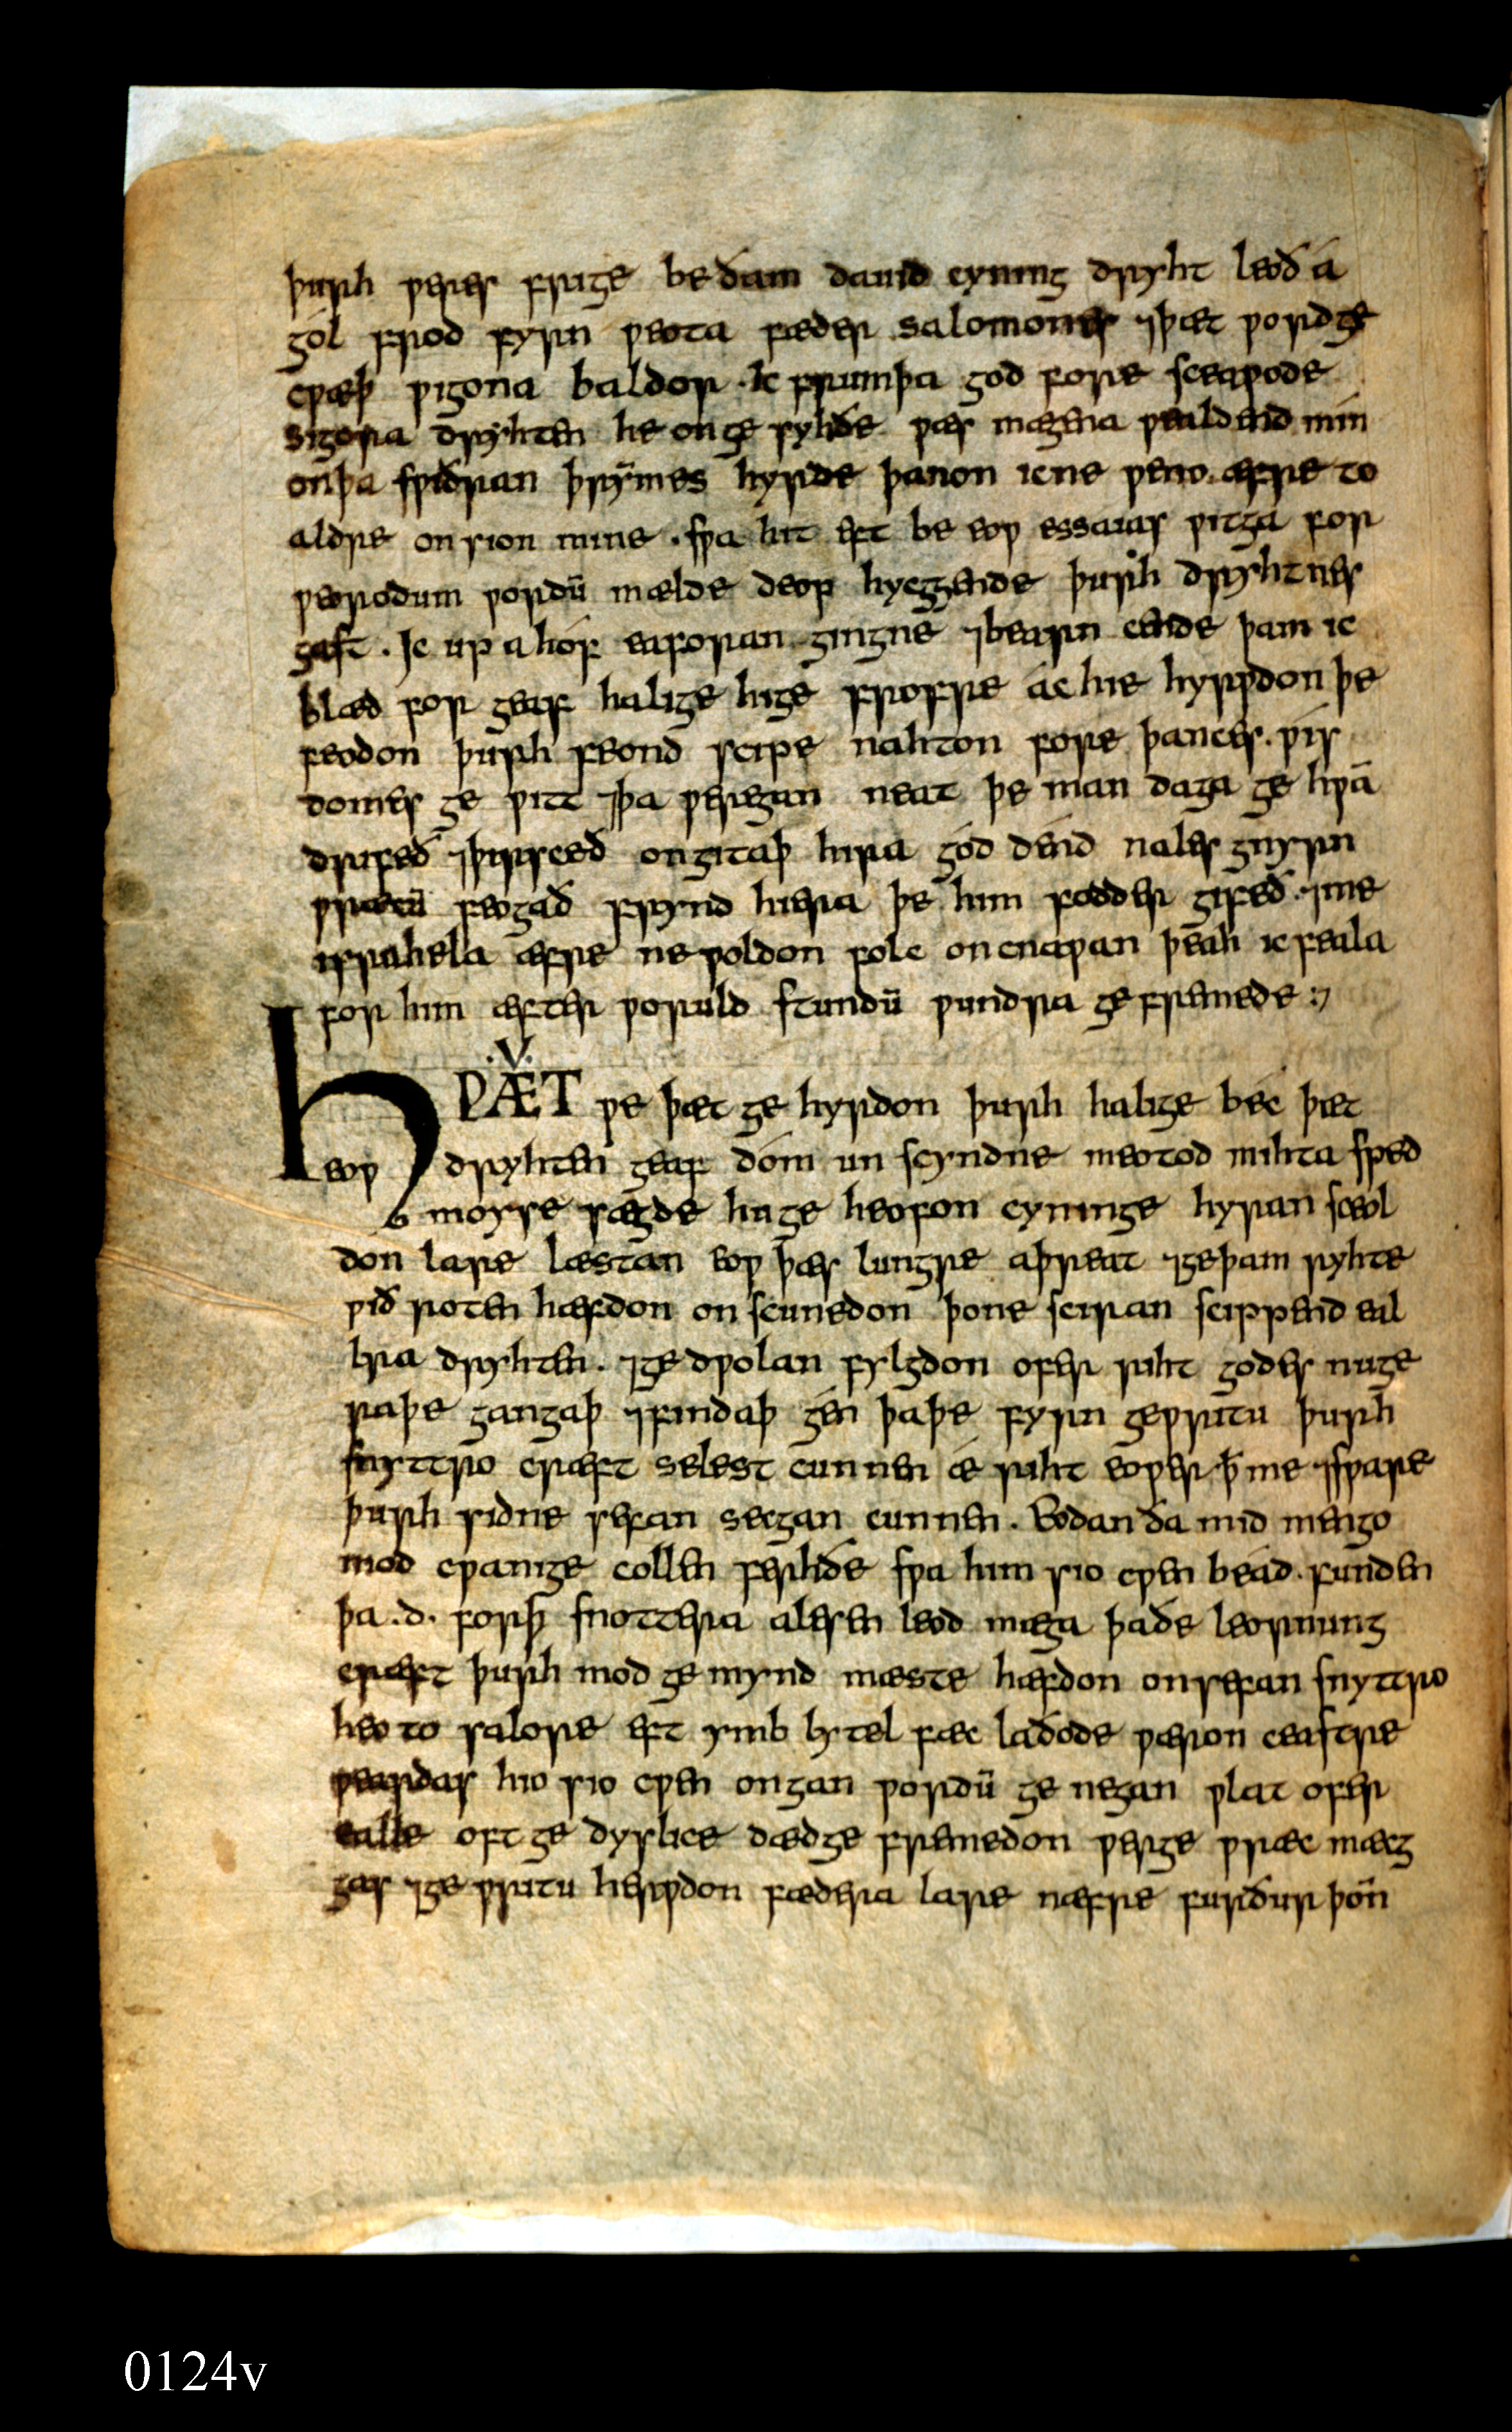 þurh ƿeres frige be ðam dauid cyning dryht leoð á
gól frod fyrn ƿeota fæder salomones ⁊þæt ƿord ge
cƿæþ ƿigona baldor · Ic frumþa god fore sceaƿode
sigora dryhten he on ge syhðe ƿæs mægena ƿealdend mín
on þa sƿiðran þrymmes hyrde þanon ic ne ƿeno. æfre to
aldre on sion mine . sƿa hit eft be eoƿ essaias ƿitga for
ƿeorodum ƿordū mælde deop hycggende þurh dryhtnes
gast . Ic up a hóf eaforan gingne ⁊bearn cende þam ic
blæd for geaf halige hige frofre ác hie hyrƿdon þe
feodon þurh feond scipe nahton fore þances. ƿís
domes ge ƿitt ⁊þa ƿeregan neat þe man daga ge hƿā
drifeð ⁊þirsceð ongitaþ hira gód dénd nales gnyrn
ƿræcū feogað frynd hiera þe him foddor gifeð . ⁊me
israhela æfre ne ƿoldon folc oncnaƿan þéah ic feala
for him æfter ƿoruld stundū ƿundra ge fremede :⁊
.V.
HǷÆT ƿe þæt ge hyrdon þurh halige béc þæt
eoƿ dryhten geaf dóm un scyndne meotod mihta sped
moyse sægde hu ge heofon cyninge hyran sceol
don lare læstan eoƿ þæs lungre aþreat ⁊ge þam ryhte
ƿið roten hæfdon on scunedon þone sciran scippend eal
lra dryhten . ⁊ge dƿolan fylgdon ofer riht godes nu ge
raþe gangaþ ⁊findaþ gén þa þe fyrn geƿritu þurh
snyttro cræft selest cunnen ǽ riht eoƿer ꝥ me ⁊sƿare
þurh sidne sefan secgan cunnen . Eodan ða mid mengo
mod cƿanige collen ferhðe sƿa him sio cƿen béad . funden
þa .d. forþ snottera alesen leod mæga þa ðe leornung
cræft þurh mod ge mynd mæste hæfdon on sefan snyttro
heo to salore eft ymb lytel fæc laðode ƿæron ceastre
ƿeardas hio sio cƿen ongan ƿordū ge negan ƿlat ofer
ealle oft ge dyslice dæd ge fremedon ƿerge ƿræc mæcg
gas ⁊ge ƿritu herƿdon fædera lare næfre furður þōn
0124v